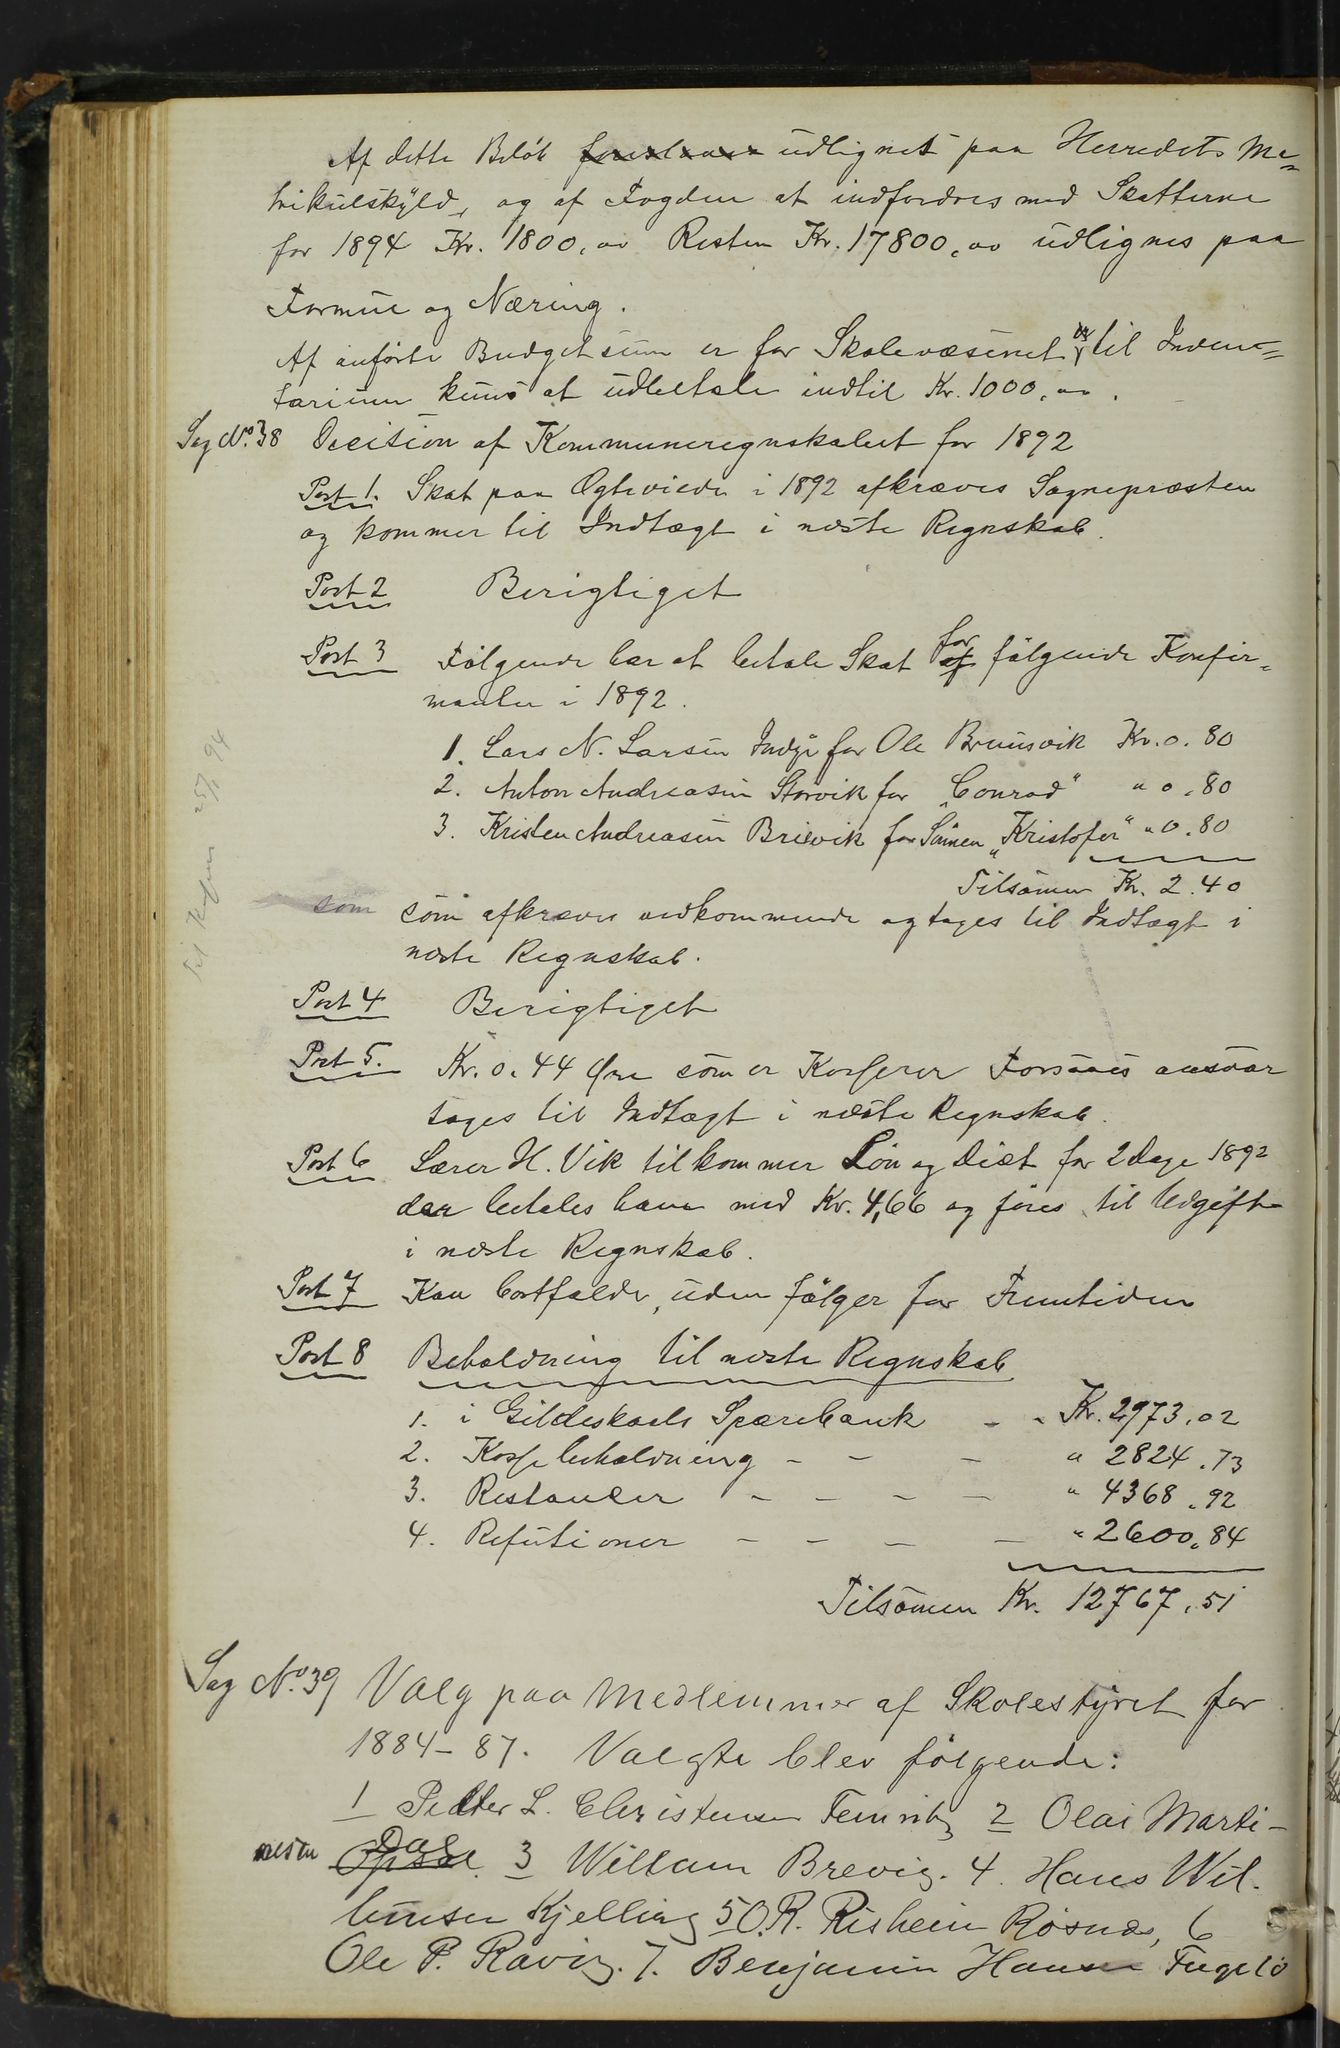 Af dette Beløb foreslaaes udlignet paa Herredets Ma-
trikulskyld, og af Fogden at indfordres med Skatterne
for 1894 Kr. 1800,00 Resten Kr. 17800,00 udlignes paa
Formue og Næring.
Af anførte Budgetsum er for Skolevæsenet og til Inven-
tarium kuns at udbetale indtil Kr. 1000,00.
Sag No. 38 Decision af Kommuneregnskabet for 1892
Post 1. Skat paa Ægteviede i 1892 afkræves Sognepræsten
og kommer til Indtægt i næste Regnskab.
Post 2 Berigtiget
Post 3 Følgende har at betale Skat af for følgende Konfir-
manter i 1892.
1. Lars N. Larsen Indyr for Ole Bruunsvik Kr. 0.80
2. Anton Andreasen Storvik for "Conrad" " 0.80
3. Kristen Andreasen Brievik for Sønnen "Kristofer" " 0.80
Tilsamen Kr. 2.40
som som afkræves vedkommende og tages til Indtægt i
næste Regnskab.
Til Kassen 25/4 94
Post 4 Berigtiget
Post 5. Kr. 0.44 Øre som er Kasserer Forsaaes ansvar
tages til Indtægt i næste Regnskab.
Post 6 Lærer H. Vik tilkommer Løn og Diæt for 2 Dage 1892
der betales ham med Kr. 4,66 og føres til Udgift
i næste Regnskab.
Post 7 Kan bortfalde, uden følger for Fremtiden
Post 8 Beholdning til næste Regnskab
1. i Gildeskaals Sparebank - - Kr. 2973,02
2. Kassebeholdning - - - " 2824.73
3. Restancer - - - - " 4368.92
4. Refutioner - - - - " 2600.84
Tilsamen Kr. 12767.51
Sag No. 39 Valg paa Medlemmer af Skolestyret for
1884-87. Valgte blev følgende:
1 Petter L. Christensen 2 Olai Marti-
nesen Opsal Dal 3 Willam Brevig. 4. Hans Wil.
lumsen Kjelling 5 O.R. Risheim Røsnæs, 6
Ole P. Ravig. 7. Benjamin Hansen Fugelø